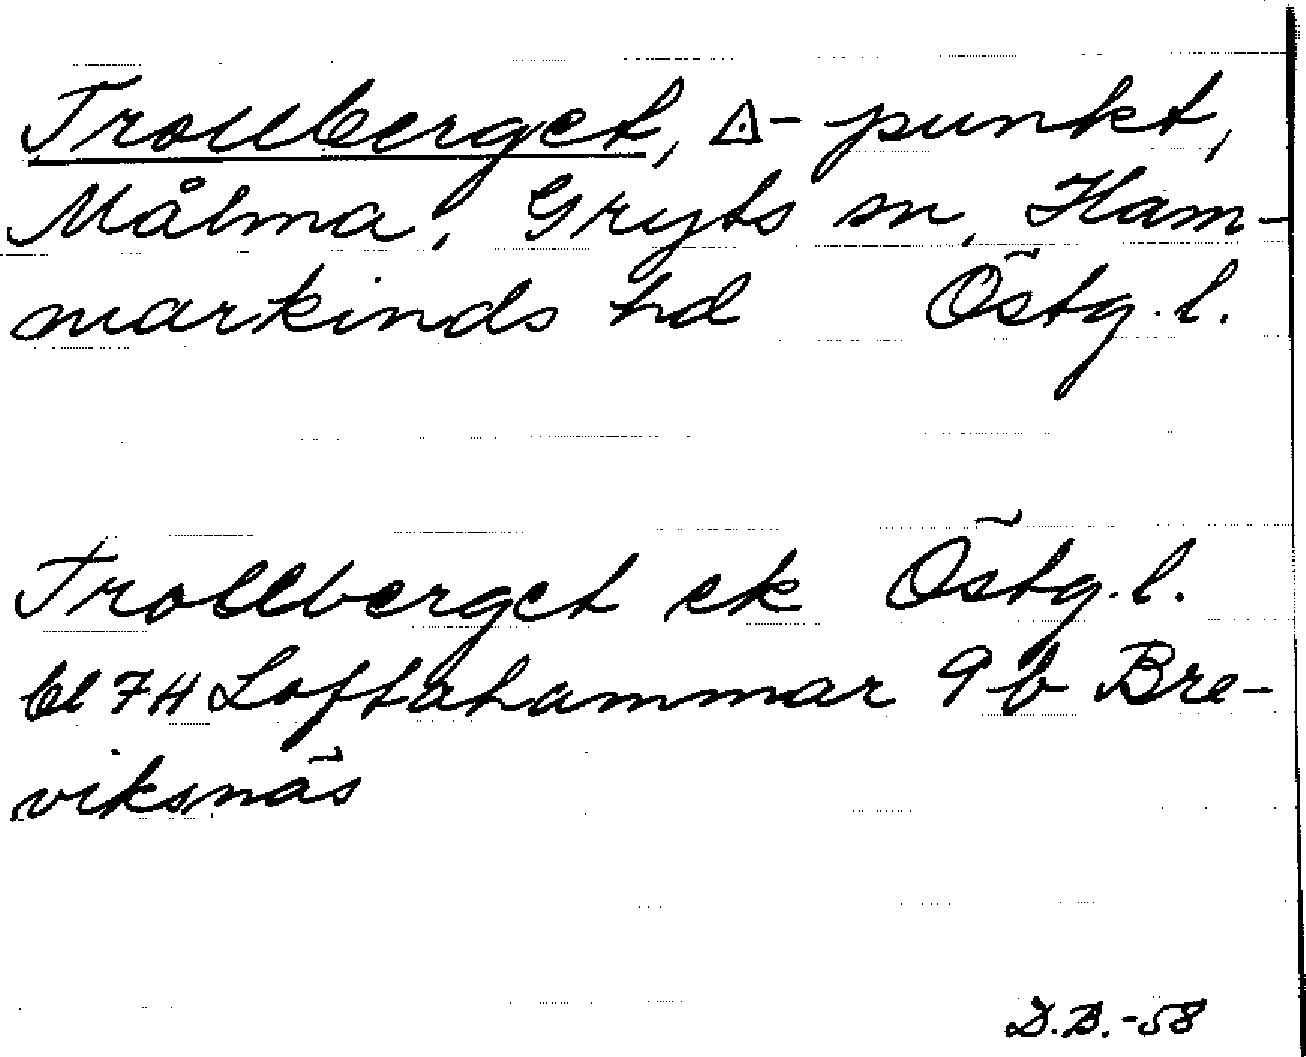 Trollberget, △-punkt,
Målma, Gryts sn, Ham-
markinds hd Östg. l.
Trollberget ek Östg. l.
bl 7H Loftahammar 9 b Bre-
viksnäs
D.B.-58